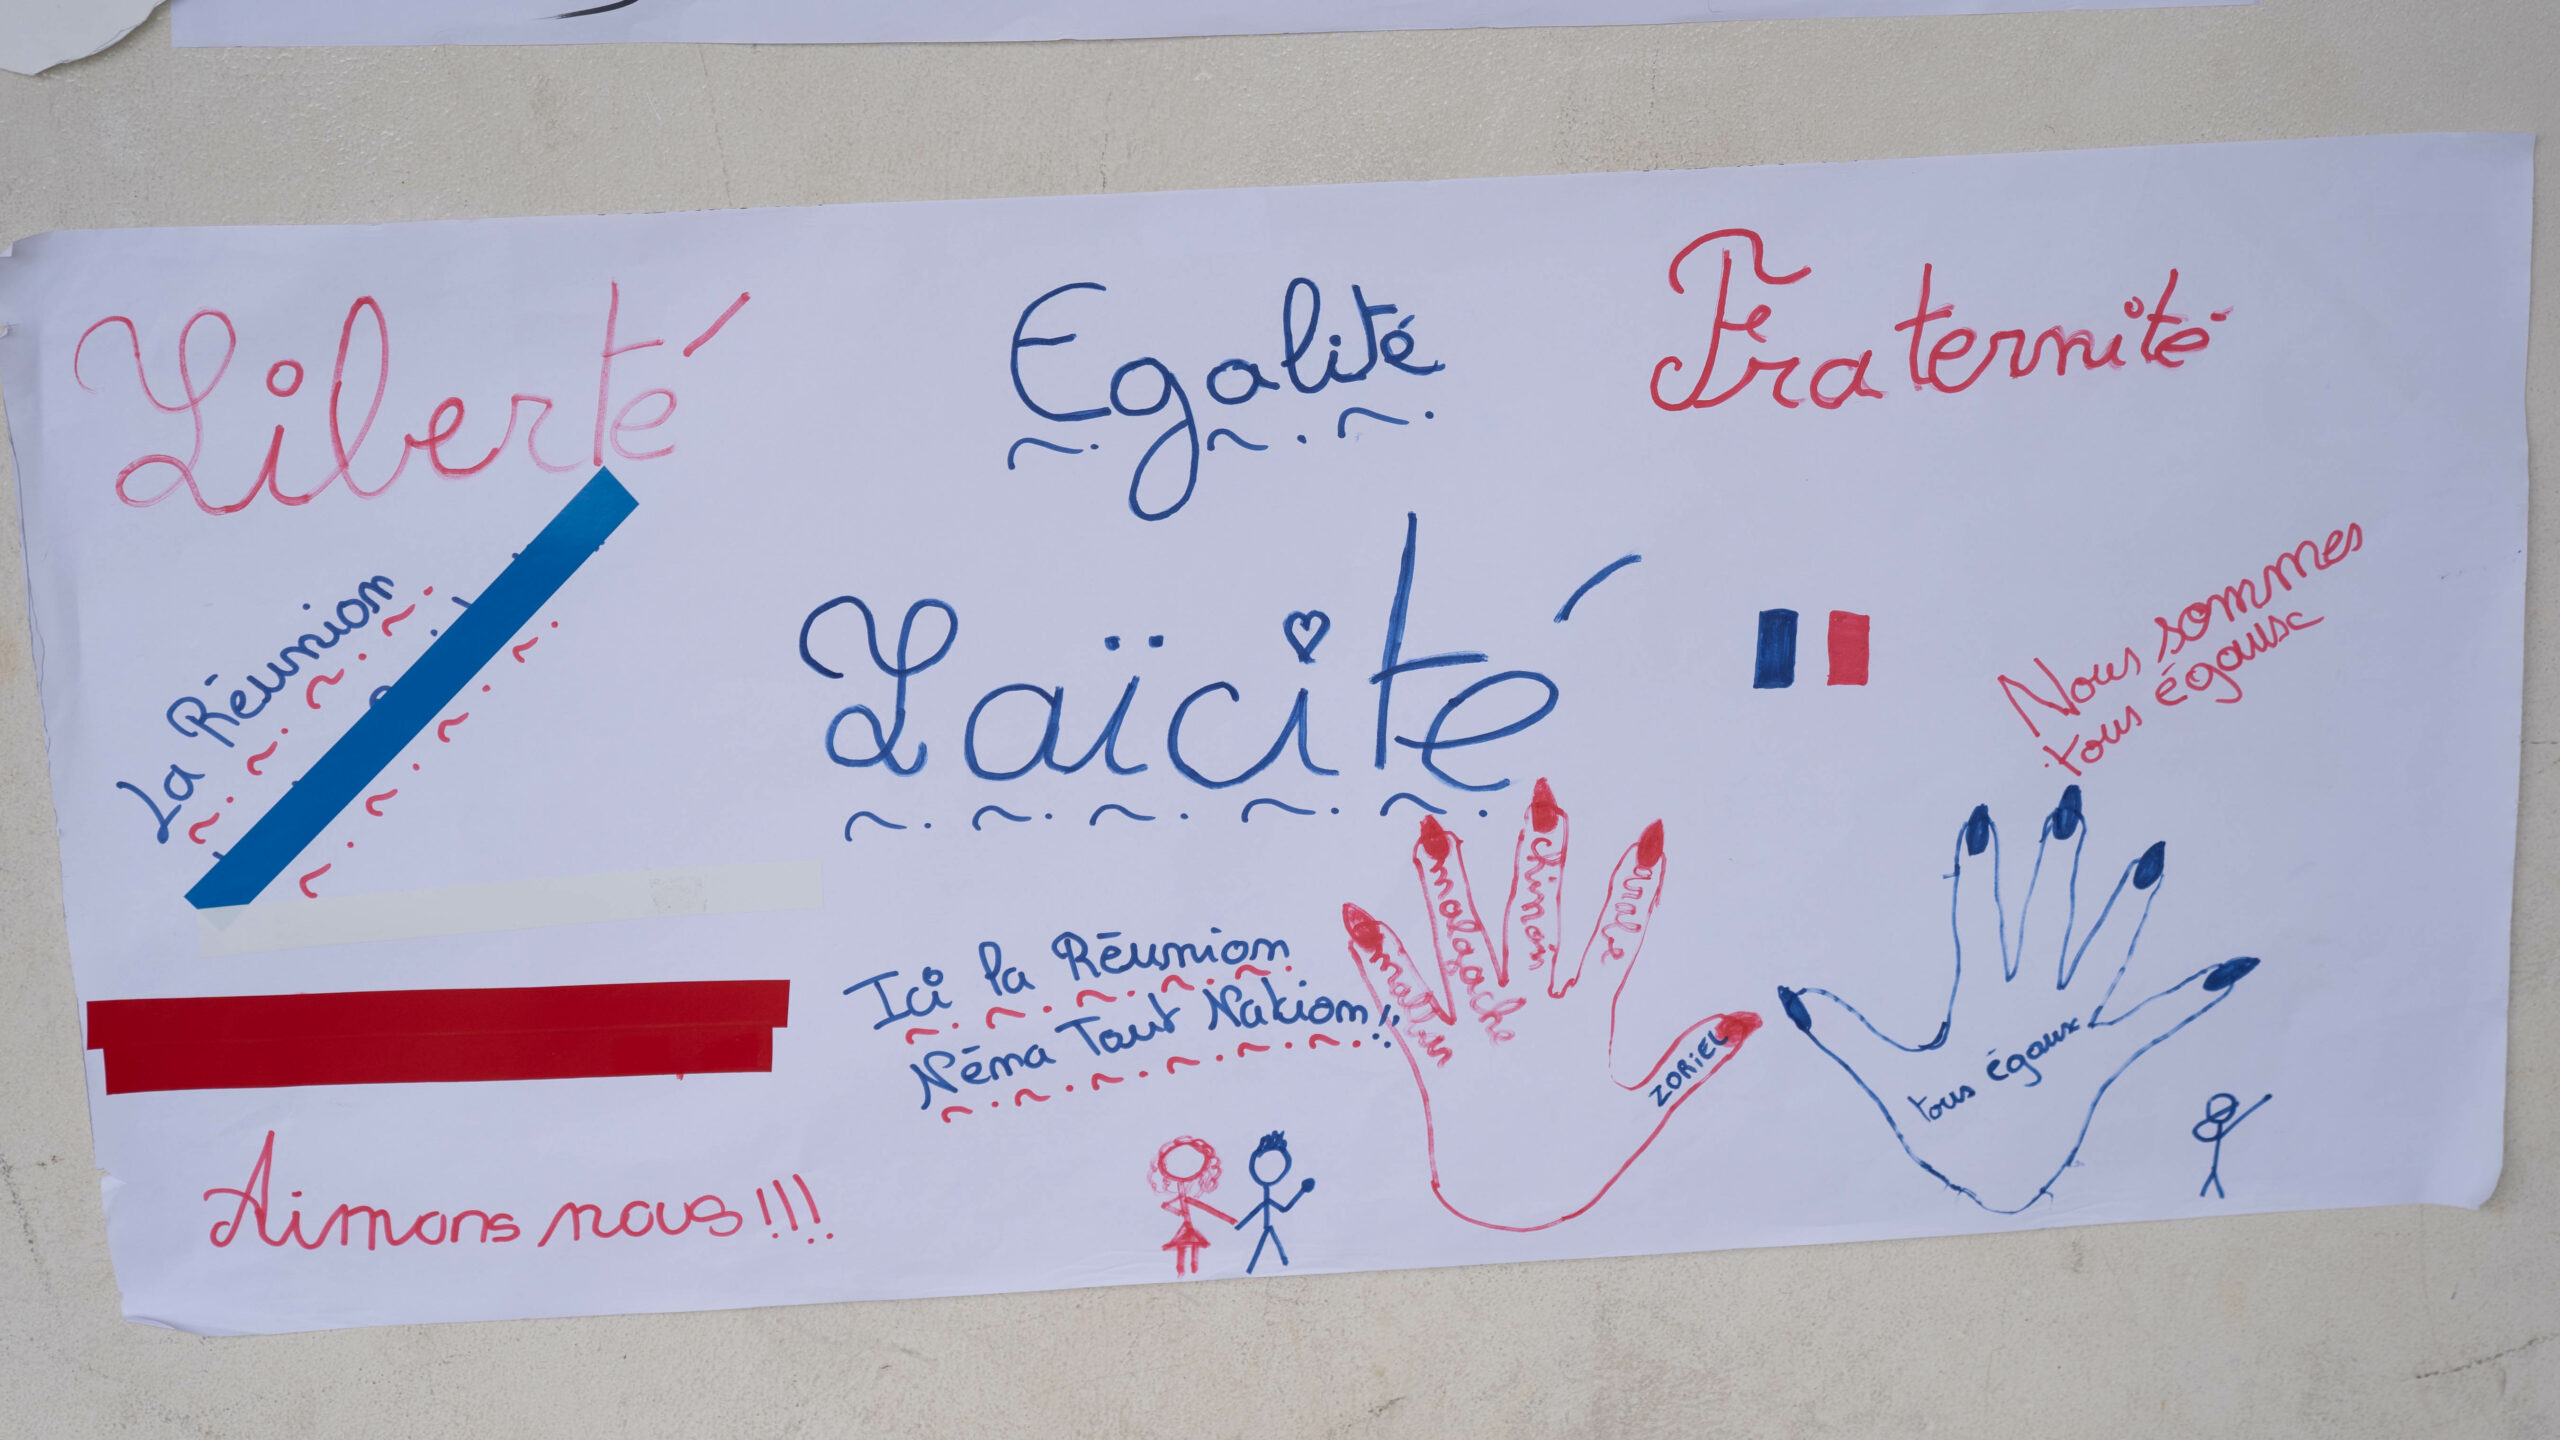 Liberté
Egalité
Fraternité
La Réunion
Laïcité
Nous sommes
tous égaux
Ici la Réunion
Néma Tout Nakion!!
malgache
chinois
arabe
ZORiEL
tous égaux
Aimons nous!!!